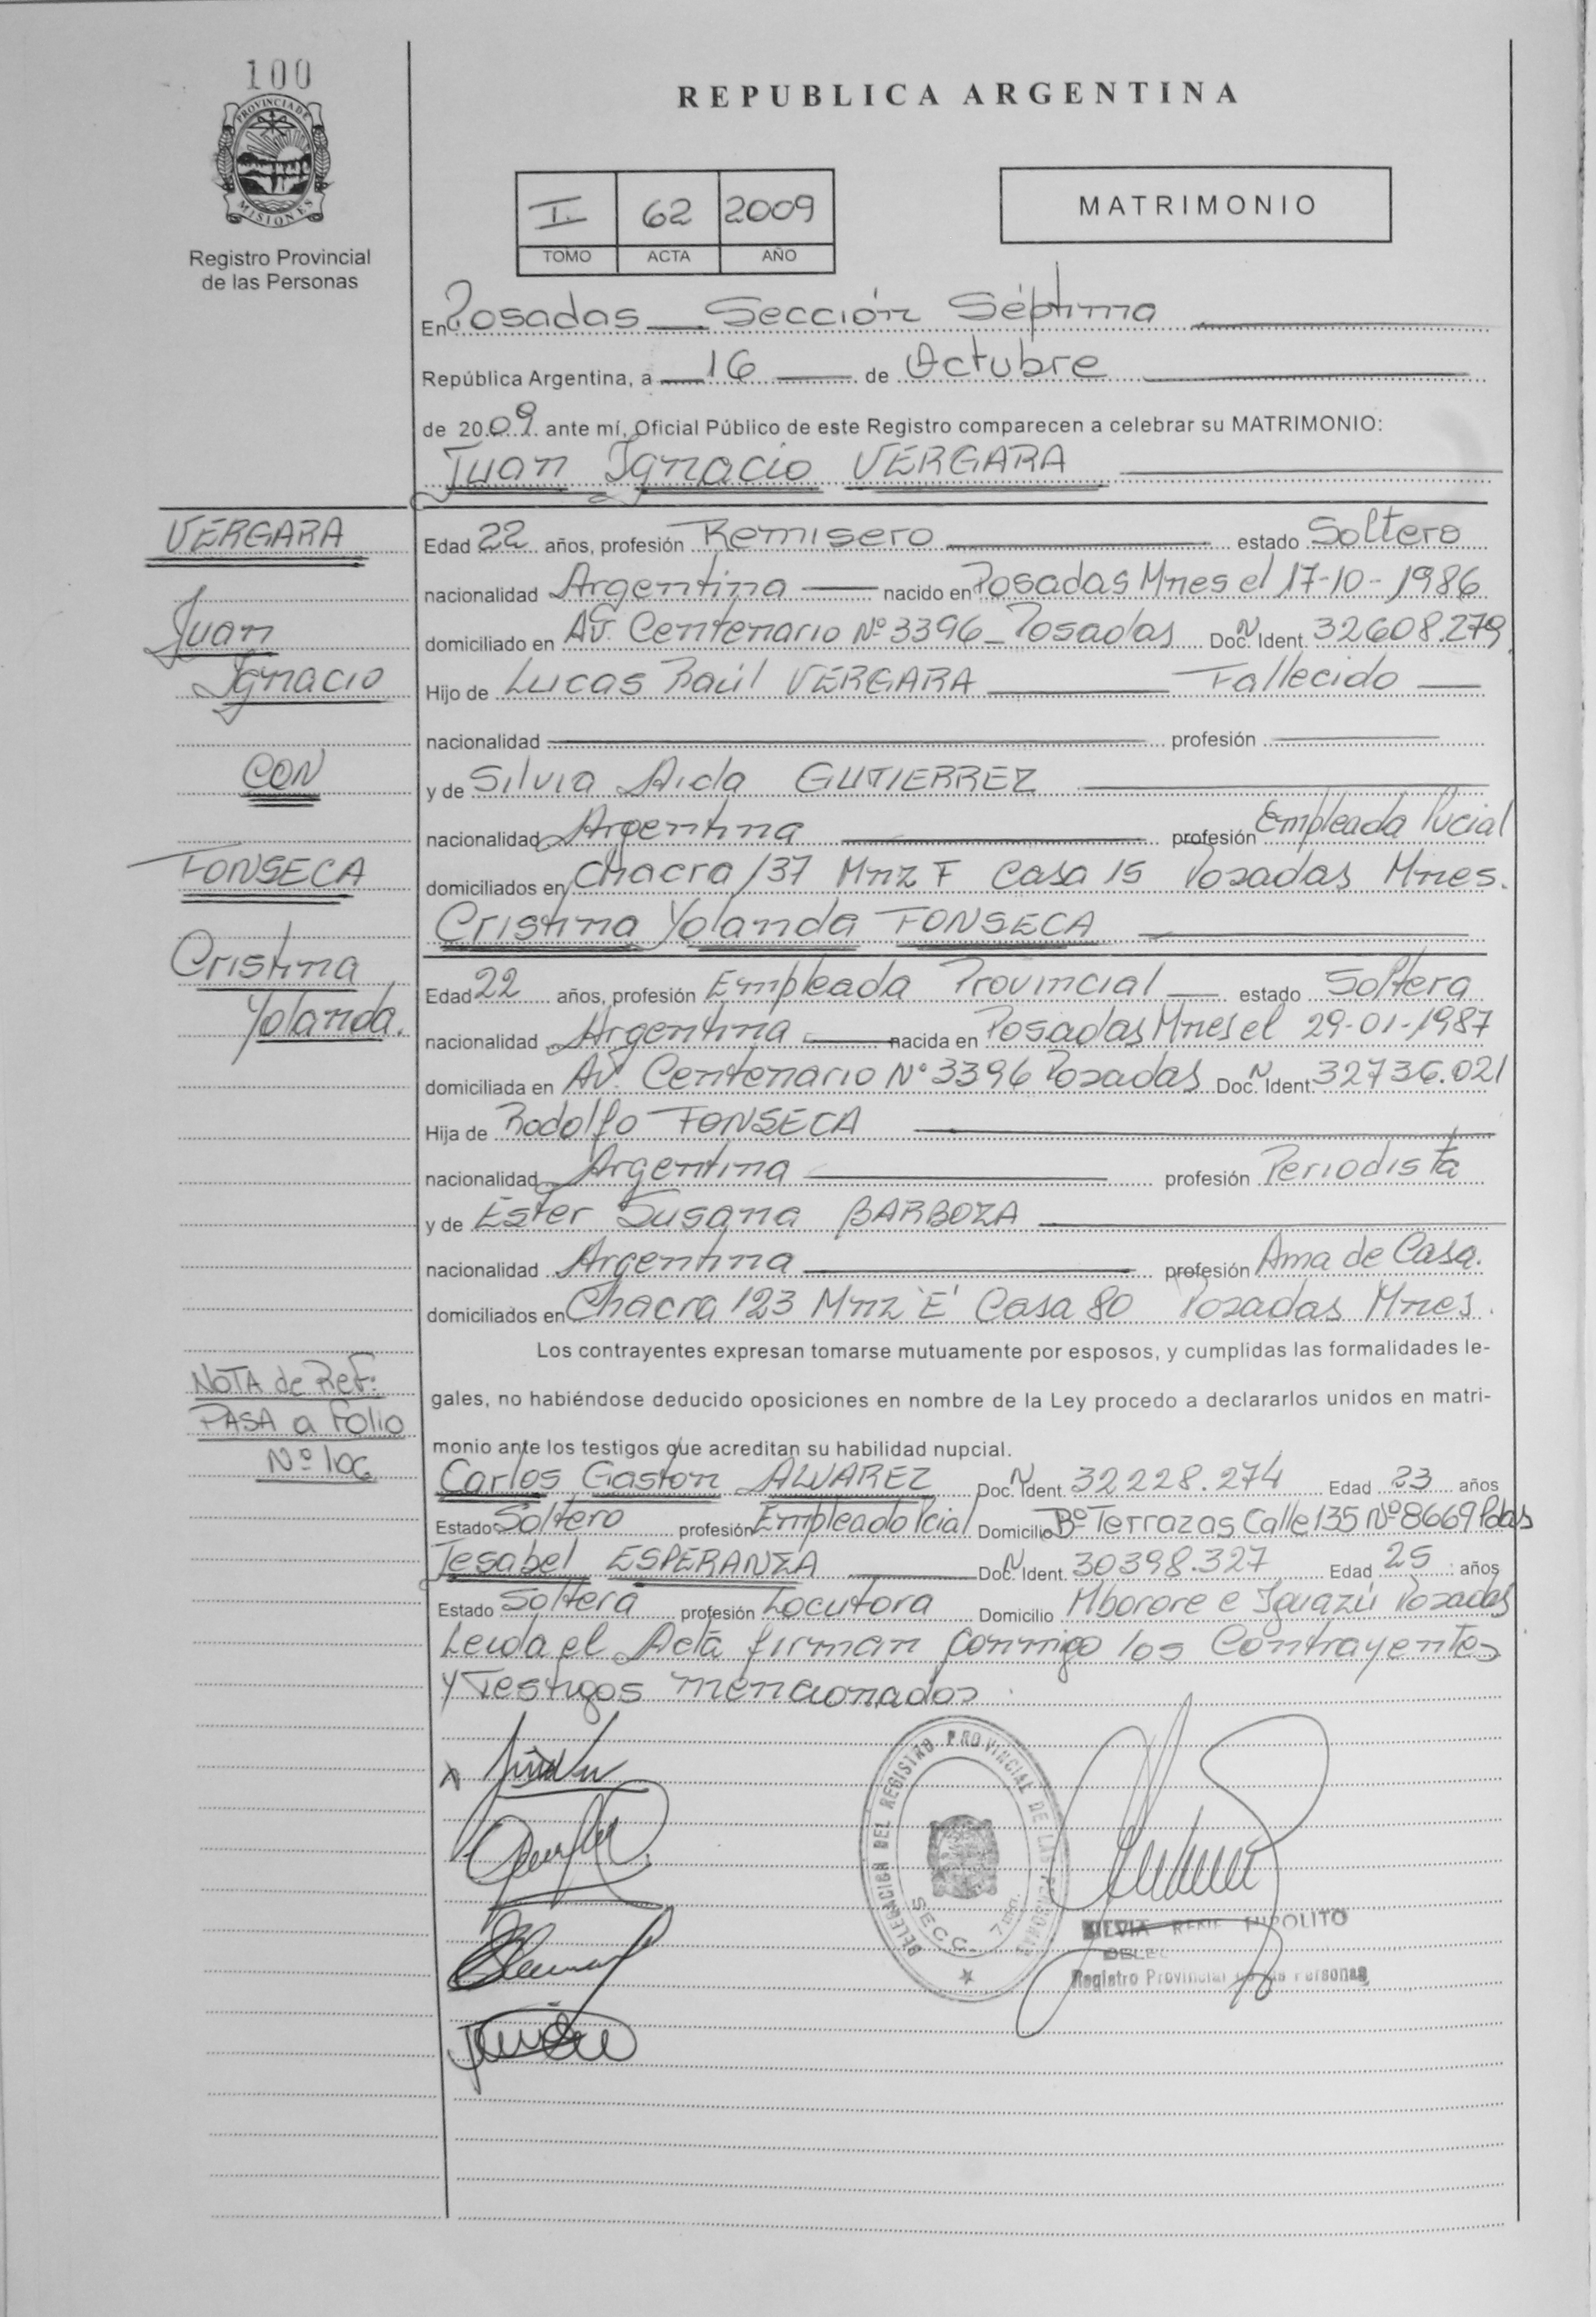 100
PROVINCIA DE
MISIONES
Registro Provincial
de las Personas
REPUBLICA ARGENTINA
I 62 2009
TOMO ACTA AÑO
MATRIMONIO
En Posadas Sección Séptima
República Argentina, a 16 de Octubre
de 2009 ante mí, Oficial Público de este Registro comparecen a celebrar su MATRIMONIO:
Juan Ignacio VERGARA
VERGARA
Juan
Ignacio
CON
FONSECA
Cristina
Yolanda.
Edad 22 años, profesión Remisero estado Soltero
nacionalidad Argentina nacido en Posadas Mnes el 17-10-1986
domiciliado en Av. Centenario Nº 3396 - Posadas Doc. N Ident. 32608.279
Hijo de Lucas Raúl VERGARA Fallecido
nacionalidad profesión
y de Silvia Aida GUTIERREZ
nacionalidad Argentina profesión Empleada Pvcial
domiciliados en Chacra 137 Mnz F Casa 15 Posadas Mnes.
Cristina Yolanda FONSECA
Edad 22 años, profesión Empleada Provincial estado Soltera
nacionalidad Argentina nacida en Posadas Mnes el 29-01-1987
domiciliada en Av. Centenario Nº 3396 Posadas Doc. N Ident. 32736.021
Hija de Rodolfo FONSECA
nacionalidad Argentina profesión Periodista
y de Ester Susana BARBOZA
nacionalidad Argentina profesión Ama de Casa.
domiciliados en Chacra 123 Mnz 'E' Casa 80 Posadas Mnes.
Los contrayentes expresan tomarse mutuamente por esposos, y cumplidas las formalidades le-
gales, no habiéndose deducido oposiciones en nombre de la Ley procedo a declararlos unidos en matri-
monio ante los testigos que acreditan su habilidad nupcial.
NOTA de Ref:
PASA a Folio
Nº 106
Carlos Gaston ALVAREZ Doc. N Ident. 32228.274 Edad 23 años
Estado Soltero profesión Empleado Pcial Domicilio Bº Terrazas Calle 135 Nº 8669 Pdas
Jesabel ESPERANZA Doc. N Ident. 30398.327 Edad 25 años
Estado Soltera profesión Locutora Domicilio Mborore e Iguazú Posadas
Leida el Acta firman conmigo los Contrayentes
y Testigos mencionados.
DELEGACION DEL REGISTRO PROVINCIAL DE LAS PERSONAS
SECC. 7
SILVIA RENE HIPOLITO
Registro Provincial de las Personas